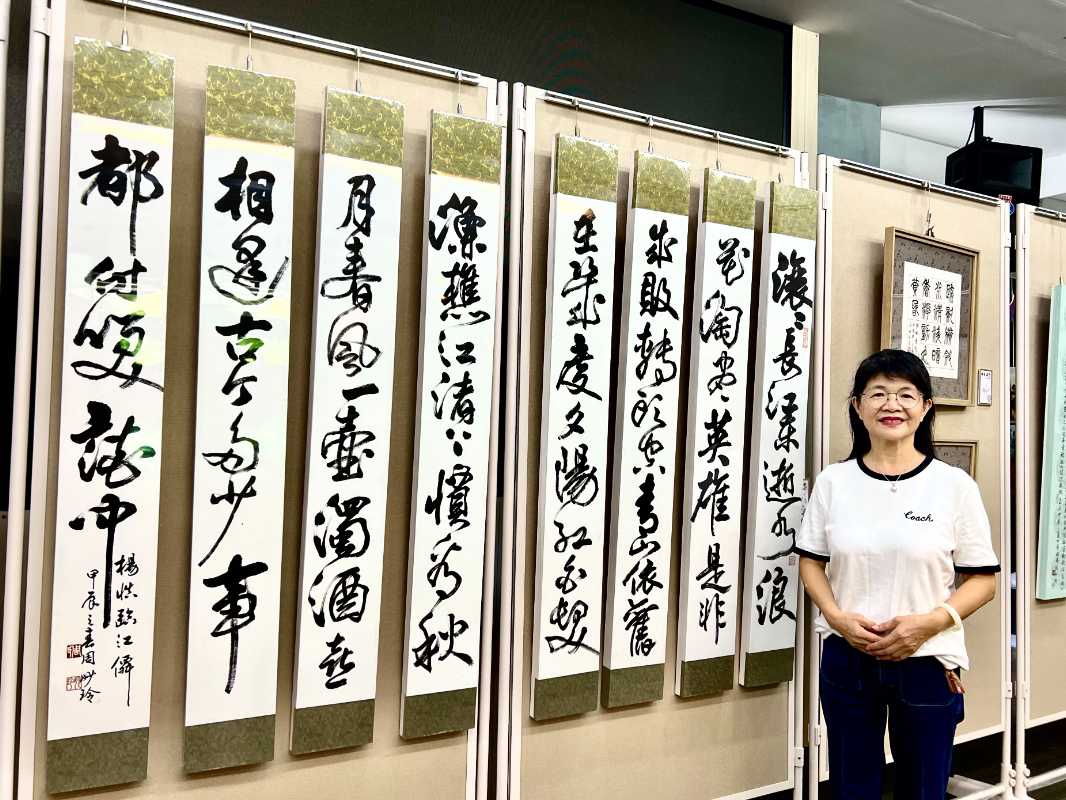 滾滾長江東逝水浪
花淘尽英雄是非
成敗轉頭空青山依舊
在幾度夕陽紅白髮
漁樵江渚上慣看秋
月春風一壺濁酒喜
相逢古今多少事
都付笑談中
楊慎臨江僊
甲辰之春周妙玲
Coach.